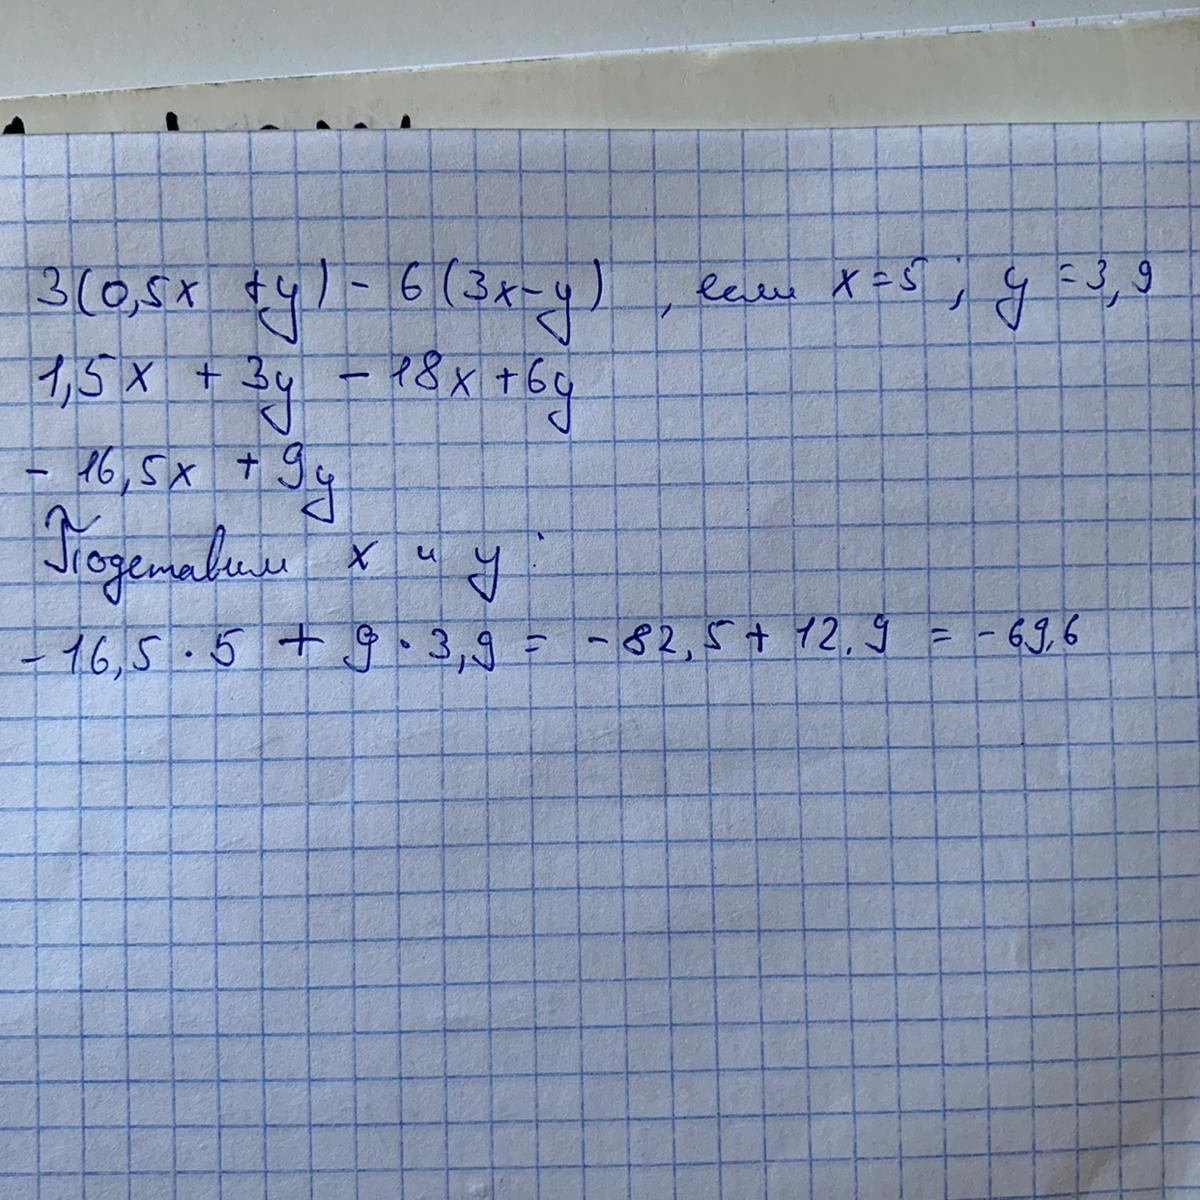 3(0,5x + y) - 6(3x - y) , если x = 5 ; y = 3,9
1,5x + 3y - 18x + 6y
- 16,5x + 9y
Подставим x и y :
- 16,5 · 5 + 9 · 3,9 = - 82,5 + 12.9 = - 69,6